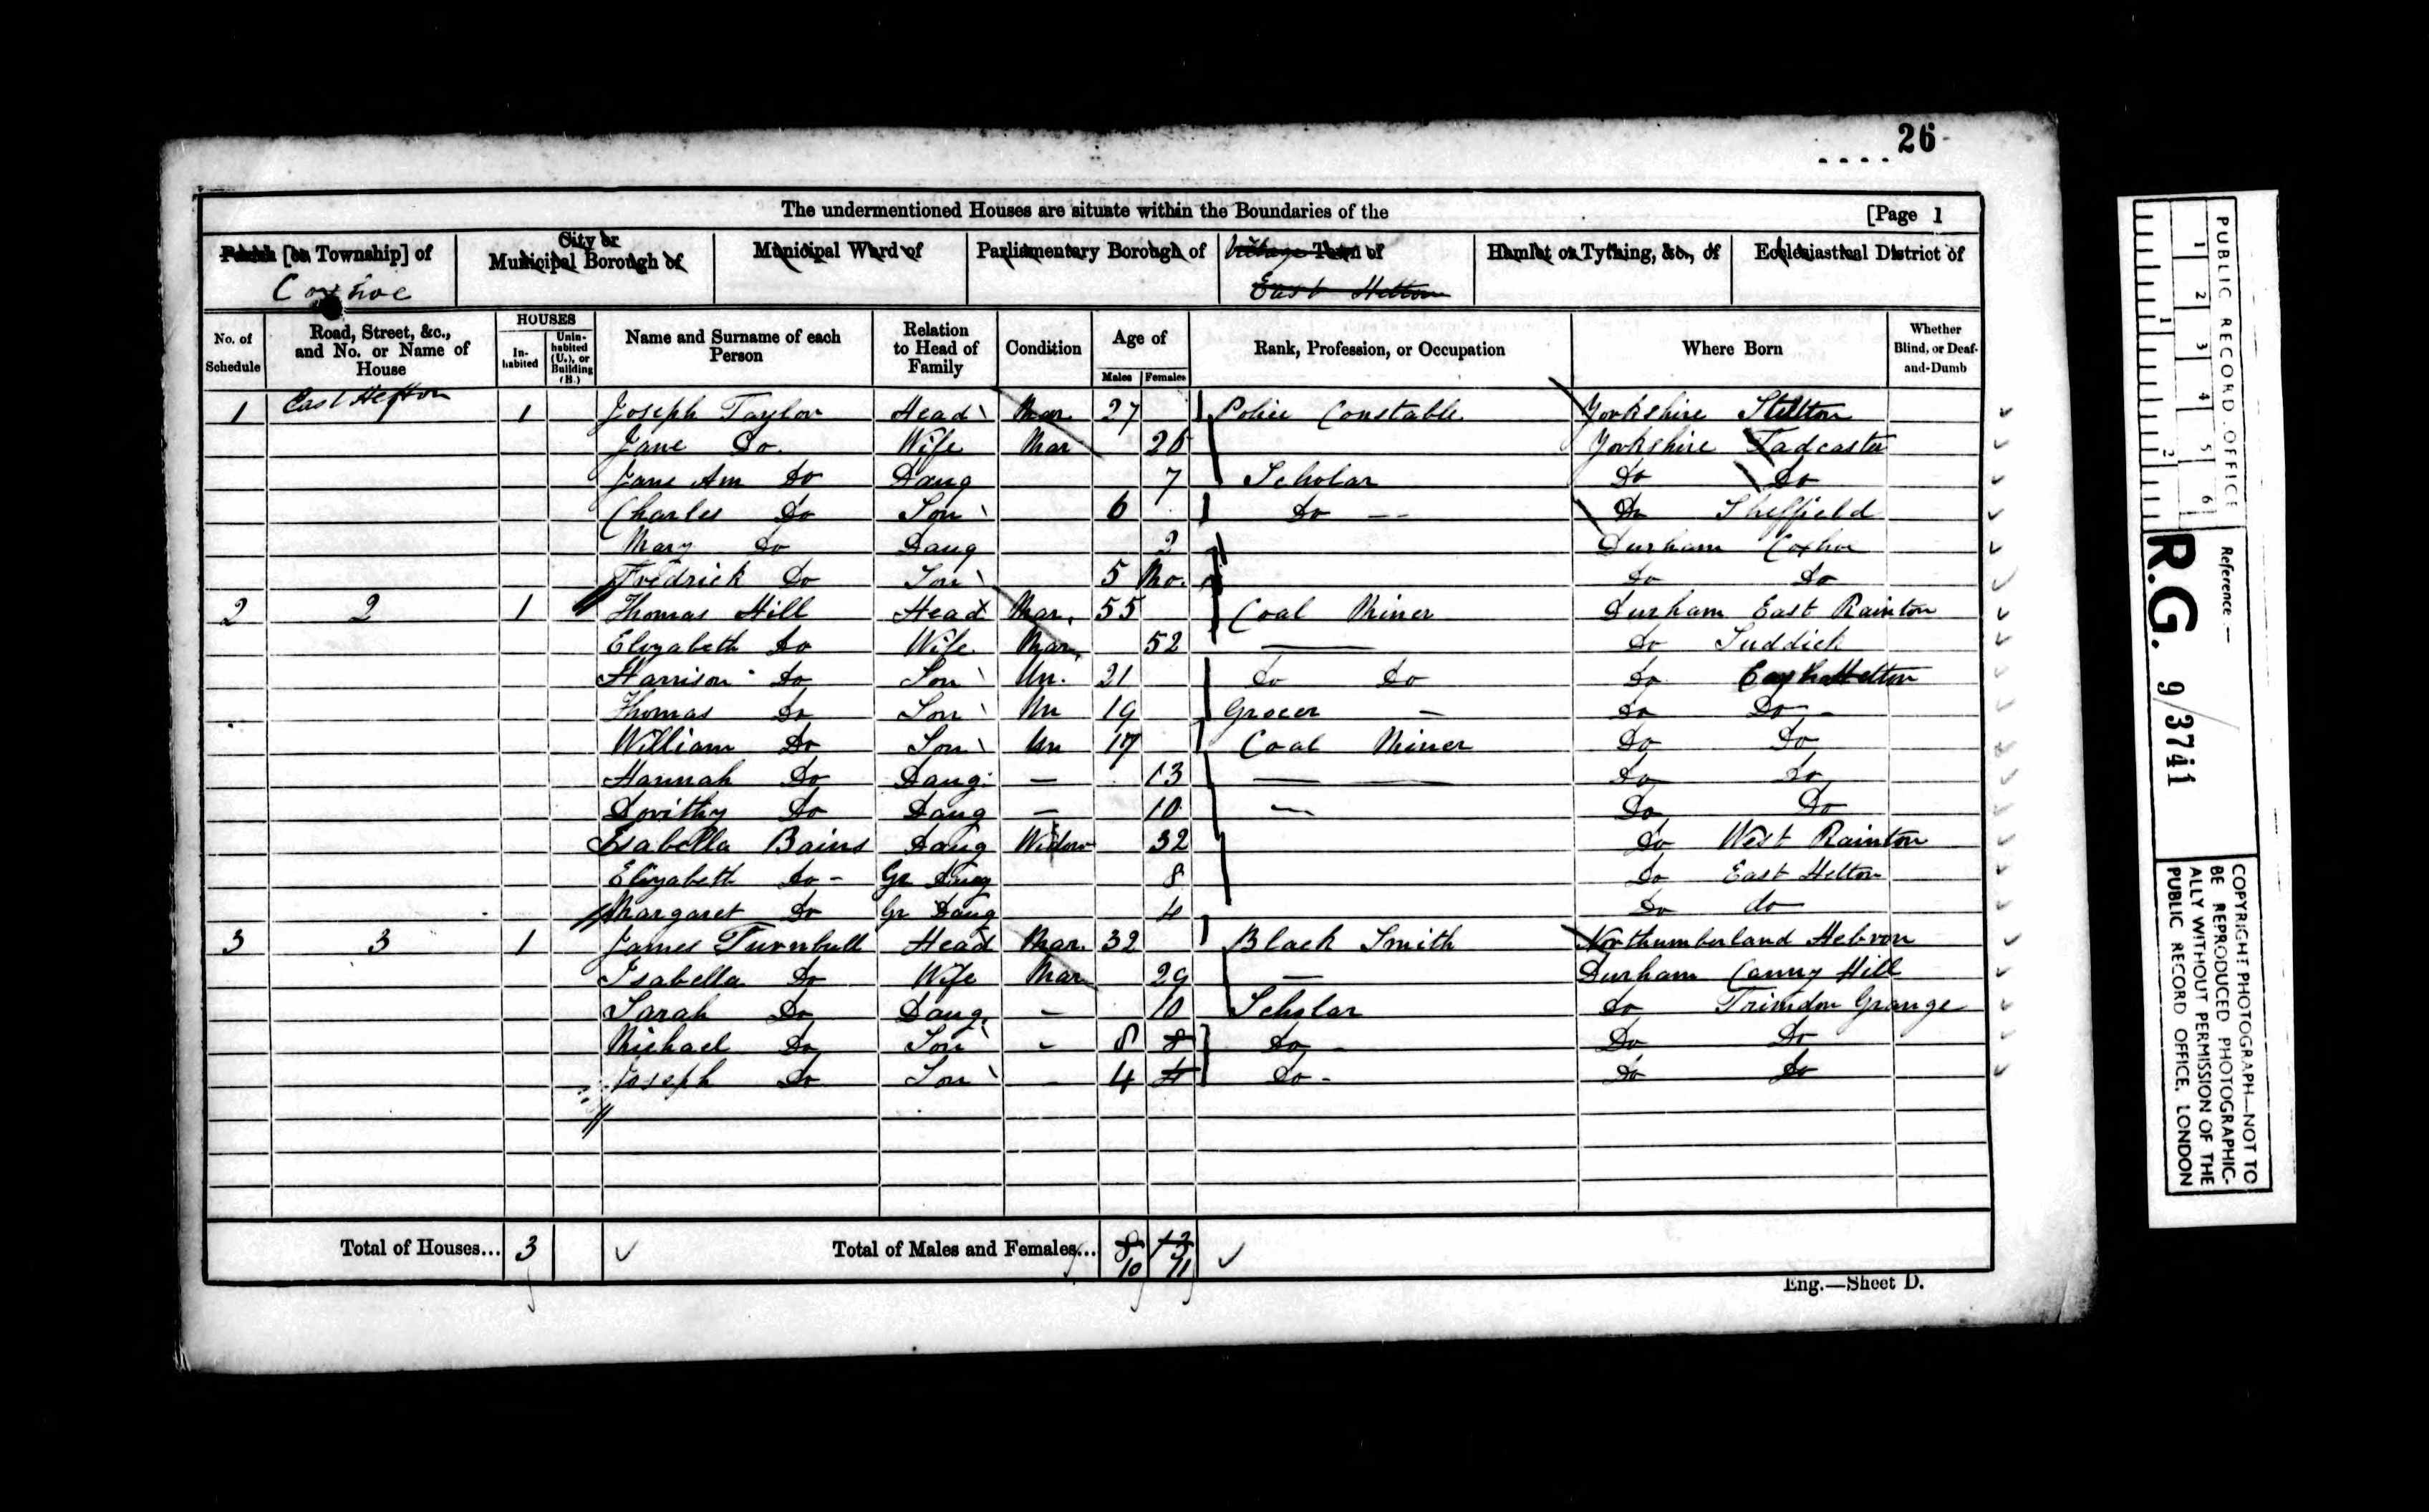 26
The undermentioned Houses are situate within the Boundaries of the [Page 1
Parish [or Township] of City or Municipal Borough of Municipal Ward of Parliamentary Borough of Village Town of Hamlet or Tything, &c., of Ecclesiastical District of
Coxhoe East Hetton
No. of Schedule Road, Street, &c., and No. or Name of House HOUSES In-habited Unin-habited (U.), or Building (B.) Name and Surname of each Person Relation to Head of Family Condition Age of Males Females Rank, Profession, or Occupation Where Born Whether Blind, or Deaf-and-Dumb
1 East Hetton 1 Joseph Taylor Head Mar. 27 Police Constable Yorkshire Stillton
Jane Do. Wife Mar 26 Yorkshire Tadcaster
Jane Ann Do Daug 7 Scholar Do Do
Charles Do Son 6 Do -- Do Sheffield
Mary Do Daug 2 Durham Coxhoe
Fredrick Do Son 5 Mo. Do Do
2 2 1 Thomas Hill Head Mar. 55 Coal Miner Durham East Rainton
Elizabeth Do Wife Mar. 52 — Do Suddick
Harrison Do Son Un. 21 Do Do Do East Hetton
Thomas Do Son Un 19 Grocer – Do Do -
William Do Son Un 17 Coal Miner Do Do
Hannah Do Daug. — 13 — — Do Do
Dorithy Do Daug — 10 — Do Do
Isabella Bains Daug Widow 32 Do West Rainton
Elizabeth Do - Gr Daug 8 Do East Hetton
Margaret Do Gr Daug 4 Do do
3 3 1 James Turnbull Head Mar. 32 Black Smith Northumberland Hebron
Isabella Do Wife Mar 29 — Durham Canny Hill
Sarah Do Daug. - 10 Scholar Do Trimdon Grange
Michael Do Son - 8 8 Do - Do Do
Joseph Do Son - 4 4 Do - Do Do
Total of Houses... 3 Total of Males and Females... 8 13
10 11
Eng.—Sheet D.
PUBLIC RECORD OFFICE
1 2 3 4 5 6
1 2
Reference:—
R.G. 9/3741
COPYRIGHT PHOTOGRAPH—NOT TO
BE REPRODUCED PHOTOGRAPHIC-
ALLY WITHOUT PERMISSION OF THE
PUBLIC RECORD OFFICE, LONDON